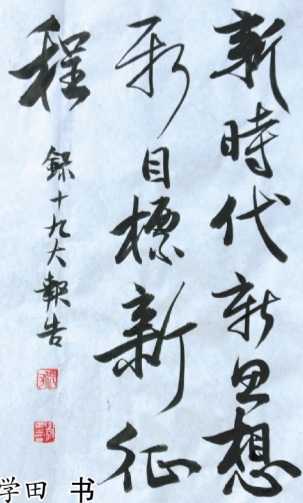 新時代新思想
新目標新征
程
錄十九大報告
学田 书